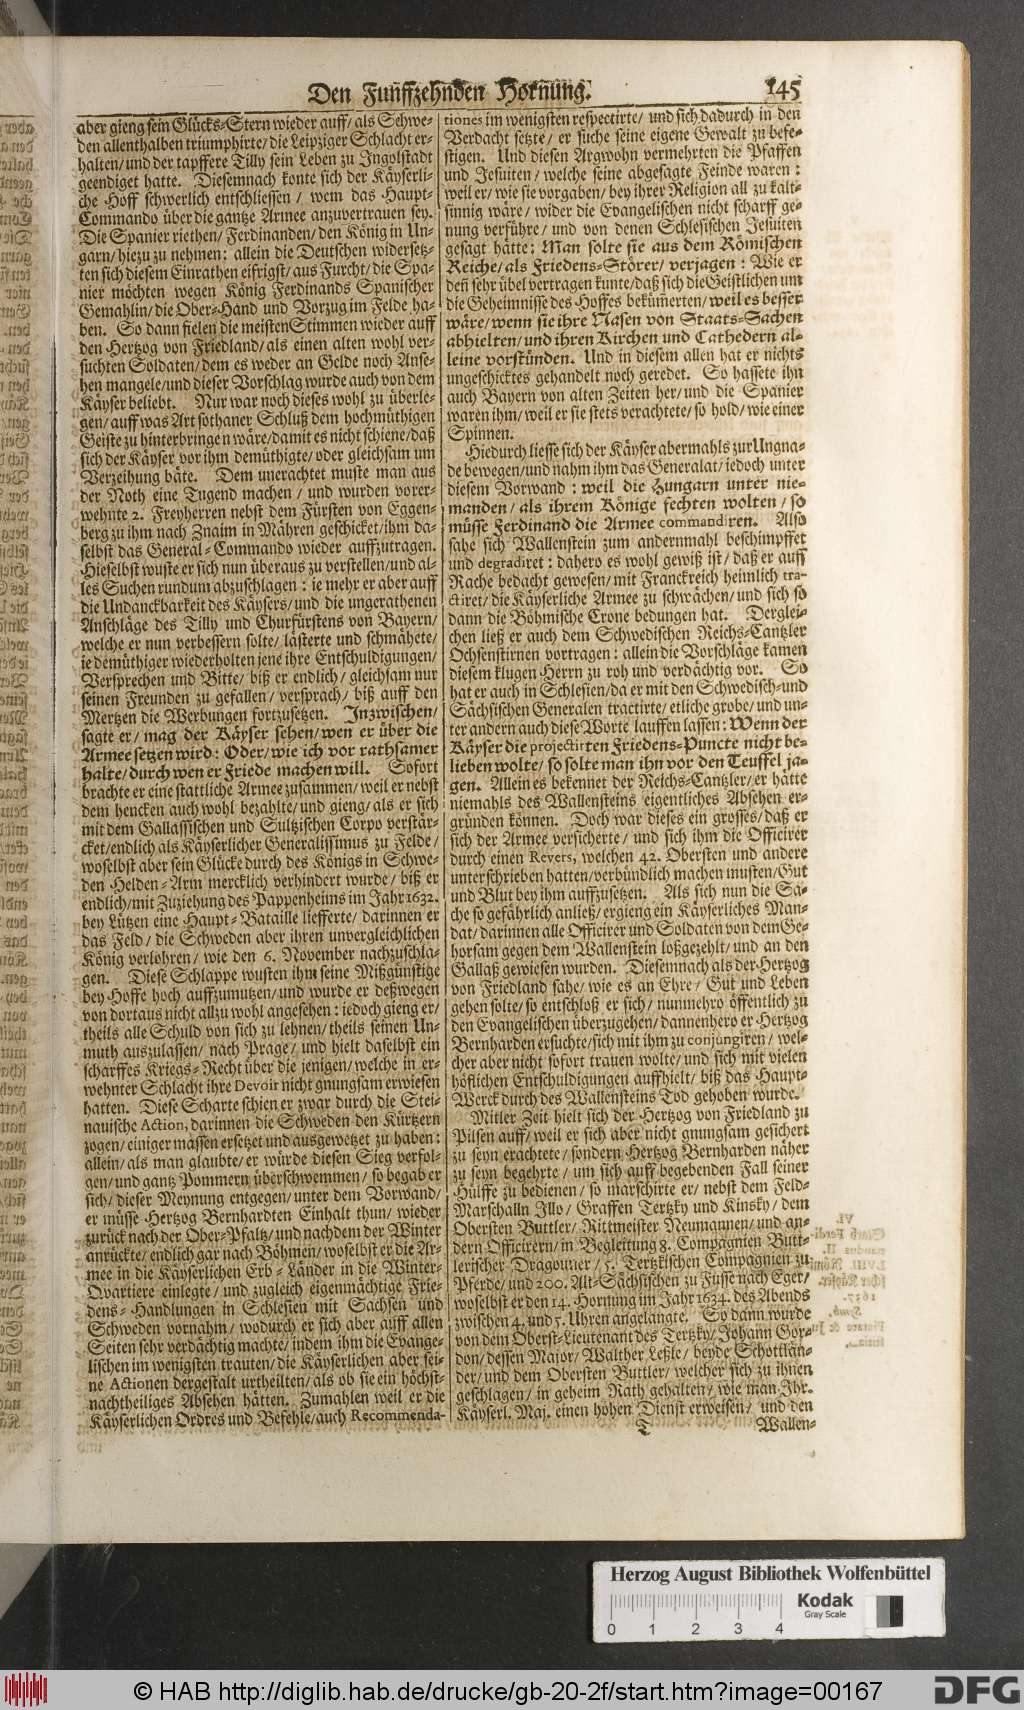 Den Funffzehnden Hornung. 145
aber gieng sein Glücks-Stern wieder auff/ als Schwe-
den allenthalben triumphirte/ die Leipziger Schlacht er-
halten/ und der tapffere Tilly sein Leben zu Ingolstadt
geendiget hatte. Diesemnach konte sich der Käyserli-
che Hoff schwerlich entschliessen / wem das Haupt-
Commando über die gantze Armee anzuvertrauen sey.
Die Spanier riethen/ Ferdinanden/ den König in Un-
garn/ hiezu zu nehmen: allein die Deutschen widersetz-
ten sich diesem Einrathen eifrigst/ aus Furcht/ die Spa-
nier möchten wegen König Ferdinands Spanischer
Gemahlin/ die Ober-Hand und Vorzug im Felde ha-
ben. So dann fielen die meisten Stimmen wieder auff
den Hertzog von Friedland/ als einen alten wohl ver-
suchten Soldaten/ dem es weder an Gelde noch Anse-
hen mangele/ und dieser Vorschlag wurde auch von dem
Käyser beliebt. Nur war noch dieses wohl zu überle-
gen/ auff was Art sothaner Schluß dem hochmüthigen
Geiste zu hinterbringen wäre/ damit es nicht schiene/ daß
sich der Käyser vor ihm demüthigte/ oder gleichsam um
Verzeihung bäte. Dem unerachtet muste man aus
der Noth eine Tugend machen / und wurden vorer-
wehnte 2. Freyherren nebst dem Fürsten von Eggen-
berg zu ihm nach Znaim in Mähren geschicket/ ihm da-
selbst das General-Commando wieder auffzutragen.
Hieselbst wuste er sich nun überaus zu verstellen/ und al-
les Suchen rundum abzuschlagen: ie mehr er aber auff
die Undanckbarkeit des Käysers/ und die ungerathenen
Anschläge des Tilly und Churfürstens von Bayern/
welche er nun verbessern solte/ lästerte und schmähete/
ie demüthiger wiederholten jene ihre Entschuldigungen/
Versprechen und Bitte/ biß er endlich/ gleichsam nur
seinen Freunden zu gefallen/ versprach/ biß auff den
Mertzen die Werbungen fortzusetzen. Inzwischen/
sagte er/ mag der Käyser sehen/ wen er über die
Armee setzen wird: Oder/ wie ich vor rathsamer
halte/ durch wen er Friede machen will. Sofort
brachte er eine stattliche Armee zusammen/ weil er nebst
dem hencken auch wohl bezahlte/ und gieng/ als er sich
mit dem Gallassischen und Sultzischen Corpo verstär-
cket/ endlich als Käyserlicher Generalissimus zu Felde/
woselbst aber sein Glücke durch des Königs in Schwe-
den Helden-Arm mercklich verhindert wurde/ biß er
endlich/ mit Zuziehung des Pappenheims im Jahr 1632.
bey Lützen eine Haupt-Bataille liefferte/ darinnen er
das Feld/ die Schweden aber ihren unvergleichlichen
König verlohren/ wie den 6. November nachzuschla-
gen. Diese Schlappe wusten ihm seine Mißgünstige
bey Hoffe hoch auffzumutzen/ und wurde er deßwegen
von dort aus nicht allzu wohl angesehen: iedoch gieng er/
theils alle Schuld von sich zu lehnen/ theils seinen Un-
muth auszulassen/ nach Prage/ und hielt daselbst ein
scharffes Kriegs-Recht über die jenigen/ welche in er-
wehnter Schlacht ihre Devoir nicht gnungsam erwiesen
hatten. Diese Scharte schien er zwar durch die Stei-
nauische Action, darinnen die Schweden den Kürtzern
zogen/ einiger massen ersetzet und ausgewetzet zu haben:
allein/ als man glaubte/ er würde diesen Sieg verfol-
gen/ und gantz Pommern überschwemmen/ so begab er
sich/ dieser Meynung entgegen/ unter dem Vorwand/
er müsse Hertzog Bernhardten Einhalt thun/ wieder
zurück nach der Ober-Pfaltz/ und nachdem der Winter
anrückte/ endlich gar nach Böhmen/ woselbst er die Ar-
mee in die Käyserlichen Erb-Länder in die Winter-
Qvartiere einlegte/ und zugleich eigenmächtige Frie-
dens-Handlungen in Schlesien mit Sachsen und
Schweden vornahm/ wodurch er sich aber auff allen
Seiten sehr verdächtig machte/ indem ihm die Evange-
lischen im wenigsten trauten/ die Käyserlichen aber sei-
ne Actionen dergestalt urtheilten/ als ob sie ein höchst-
nachtheiliges Absehen hätten. Zumahlen weil er die
Käyserlichen Ordres und Befehle/ auch Recommenda-
tiones im wenigsten respectirte/ und sich dadurch in den
Verdacht setzte/ er suche seine eigene Gewalt zu befe-
stigen. Und diesen Argwohn vermehrten die Pfaffen
und Jesuiten/ welche seine abgesagte Feinde waren:
weil er/ wie sie vorgaben/ bey ihrer Religion all zu kalt-
sinnig wäre/ wider die Evangelischen nicht scharff ge-
nung verführe/ und von denen Schlesischen Jesuiten
gesagt hätte: Man solte sie aus dem Römischen
Reiche/ als Friedens-Störer/ verjagen: Wie er
deñ sehr übel vertragen kunte/ daß sich die Geistlichen um
die Geheimnisse des Hoffes beküm̃erten/ weil es besser
wäre/ wenn sie ihre Nasen von Staats-Sachen
abhielten/ und ihren Kirchen und Cathedern al-
leine vorstünden. Und in diesem allen hat er nichts
ungeschicktes gehandelt noch geredet. So hassete ihn
auch Bayern von alten Zeiten her/ und die Spanier
waren ihm/ weil er sie stets verachtete/ so hold/ wie einer
Spinnen.
Hiedurch liesse sich der Käyser abermahls zur Ungna-
de bewegen/ und nahm ihm das Generalat/ iedoch unter
diesem Vorwand: weil die Hungarn unter nie-
manden/ als ihrem Könige fechten wolten/ so
müsse Ferdinand die Armee commandiren. Also
sahe sich Wallenstein zum andernmahl beschimpffet
und degradiret: dahero es wohl gewiß ist/ daß er auff
Rache bedacht gewesen/ mit Franckreich heimlich tra-
ctiret/ die Käyserliche Armee zu schwächen/ und sich so
dann die Böhmische Crone bedungen hat. Derglei-
chen ließ er auch dem Schwedischen Reichs-Cantzler
Ochsenstirnen vortragen: allein die Vorschläge kamen
diesem klugen Herrn zu roh und verdächtig vor. So
hat er auch in Schlesien/ da er mit den Schwedisch-und
Sächsischen Generalen tractirte/ etliche grobe/ und un-
ter andern auch diese Worte lauffen lassen: Wenn der
Käyser die projectirten Friedens-Puncte nicht be-
lieben wolte/ so solte man ihn vor den Teuffel ja-
gen. Allein es bekennet der Reichs-Cantzler/ er hätte
niemahls des Wallensteins eigentliches Absehen er-
gründen können. Doch war dieses ein grosses/ daß er
sich der Armee versicherte/ und sich ihm die Officirer
durch einen Revers, welchen 42. Obersten und andere
unterschrieben hatten/ verbündlich machen musten/ Gut
und Blut bey ihm auffzusetzen. Als sich nun die Sa-
che so gefährlich anließ/ ergieng ein Käyserliches Man-
dat/ darinnen alle Officirer und Soldaten von dem Ge-
horsam gegen dem Wallenstein loßgezehlt/ und an den
Gallaß gewiesen wurden. Diesemnach als der Hertzog
von Friedland sahe/ wie es an Ehre/ Gut und Leben
gehen solte/ so entschloß er sich/ nunmehro öffentlich zu
den Evangelischen überzugehen/ dannenhero er Hertzog
Bernharden ersuchte/ sich mit ihm zu conjungiren/ wel-
cher aber nicht sofort trauen wolte/ und sich mit vielen
höflichen Entschuldigungen auffhielt/ biß das Haupt-
Werck durch des Wallensteins Tod gehoben wurde.
Mitler Zeit hielt sich der Hertzog von Friedland zu
Pilsen auff/ weil er sich aber nicht gnungsam gesichert
zu seyn erachtete/ sondern Hertzog Bernharden näher
zu seyn begehrte/ um sich auff begebenden Fall seiner
Hülffe zu bedienen/ so marschirte er/ nebst dem Feld-
Marschalln Illo/ Graffen Tertzky und Kinsky/ dem
Obersten Buttler/ Rittmeister Neumannen/ und an-
dern Officirern/ in Begleitung 8. Compagnien Butt-
lerischer Dragouner/ 5. Tertzkischen Compagnien zu
Pferde/ und 200. Alt-Sächsischen zu Fusse nach Eger/
woselbst er den 14. Hornung im Jahr 1634. des Abends
zwischen 4. und 5. Uhren angelangte. So dann wurde
von dem Oberst-Lieutenant des Tertzky/ Johann Gor-
don/ dessen Major/ Walther Leßle/ beyde Schottlän-
der/ und dem Obersten Buttler/ welcher sich zu ihnen
geschlagen/ in geheim Rath gehalten/ wie man Ihr.
Käyserl. Maj. einen hohen Dienst erweisen/ und den
T Wallen-
Herzog August Bibliothek Wolfenbüttel
Kodak
Gray Scale
0 1 2 3 4
© HAB http://diglib.hab.de/drucke/gb-20-2f/start.htm?image=00167
DFG